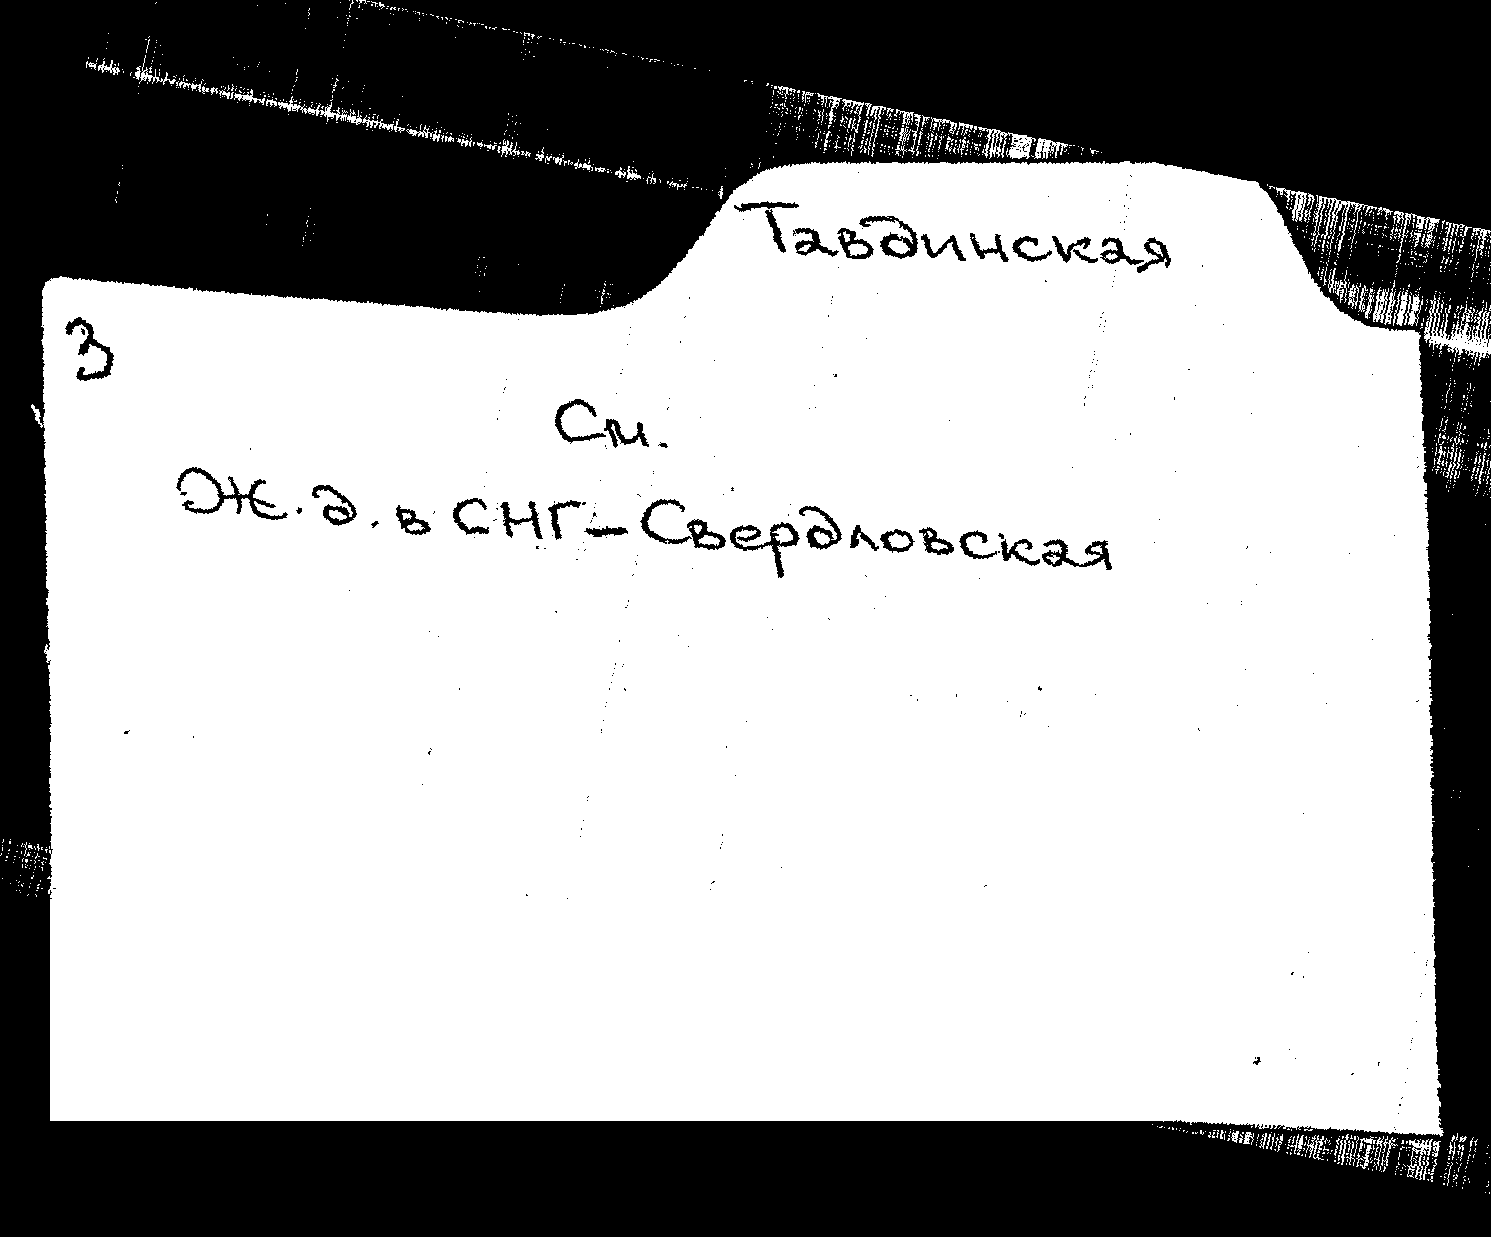 Тавдинская
3
См.
Ж.д. в СНГ – Свердловская